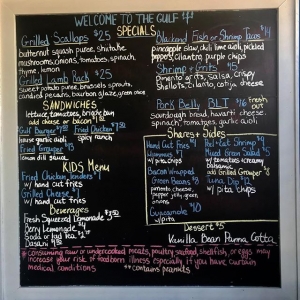 WELCOME TO THE GULF
SPECIALS
Grilled Scallops $25
butternut squash puree, shiitake
mushrooms, onions, tomatoes, spinach,
thyme, lemon
Grilled Lamb Rack $25
sweet potato puree, brussels sprouts,
candied pecans, bourbon glaze, green onion
SANDWICHES
lettuce, tomatoes, bright bun
add cheese or bacon
Gulf Burger
house garlic aioli
Fried Chicken
spicy ranch
Fried Grouper
lemon dill sauce
KIDS Menu
Fried Chicken Tenders
w/ hand cut fries
Grilled Cheese
w/ hand cut fries
Beverages
Fresh Squeezed Lemonade
Berry Lemonade
Soda or Iced Tea
Dasani
Blackened Fish or Shrimp Tacos $14
pineapple slaw, chili lime aioli, pickled
peppers, cilantro, purple chips
Shrimp & Grits $15
pimento grits, salsa, crispy
shallots, cilantro, cotija cheese
Pork Belly BLT $16
fresh out
sourdough bread, havarti cheese,
spinach, tomatoes, garlic aioli
Shares + Sides
Hand Cut Fries
Hummus
w/ pita chips
Bacon Wrapped
Green Beans
pimento cheese,
pepper jelly,
green onion
Guacamole
w/ pita
Peel + Eat Shrimp
Mixed Green Salad
w/ tomatoes, creamy
balsamic
add Grilled Grouper
Tuna Dip
w/ pita chips
Dessert $5
Vanilla Bean Panna Cotta
* consuming raw or undercooked meats, poultry, seafood, shellfish, or eggs may
increase your risk of foodborn illness especially if you have certain
medical conditions ** contains peanuts